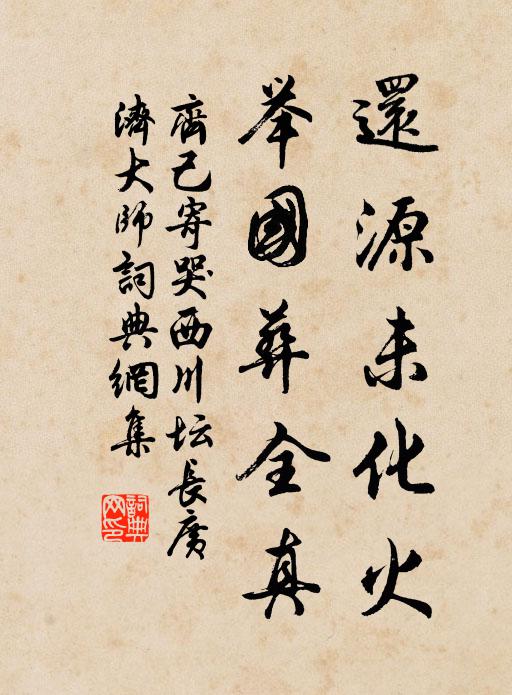 還源未化火
举國葬全真
齊己寄哭西川坛長廣
濟大師詞典網集
詞典
网印